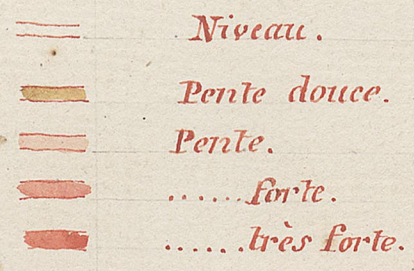 Niveau.
Pente douce.
Pente.
...... forte.
...... très forte.